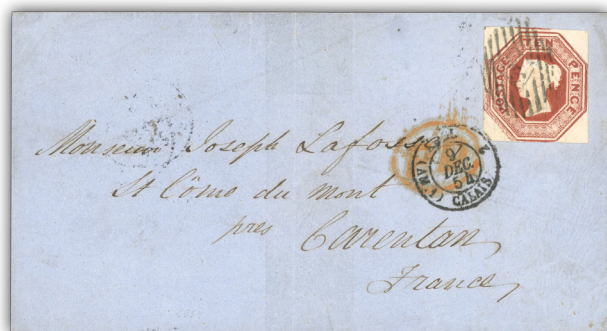 POSTAGE TEN PENCE
Monsieur Joseph Lafosse
St Côme du Mont
près Carentan
France
9
DEC.
54
CALAIS